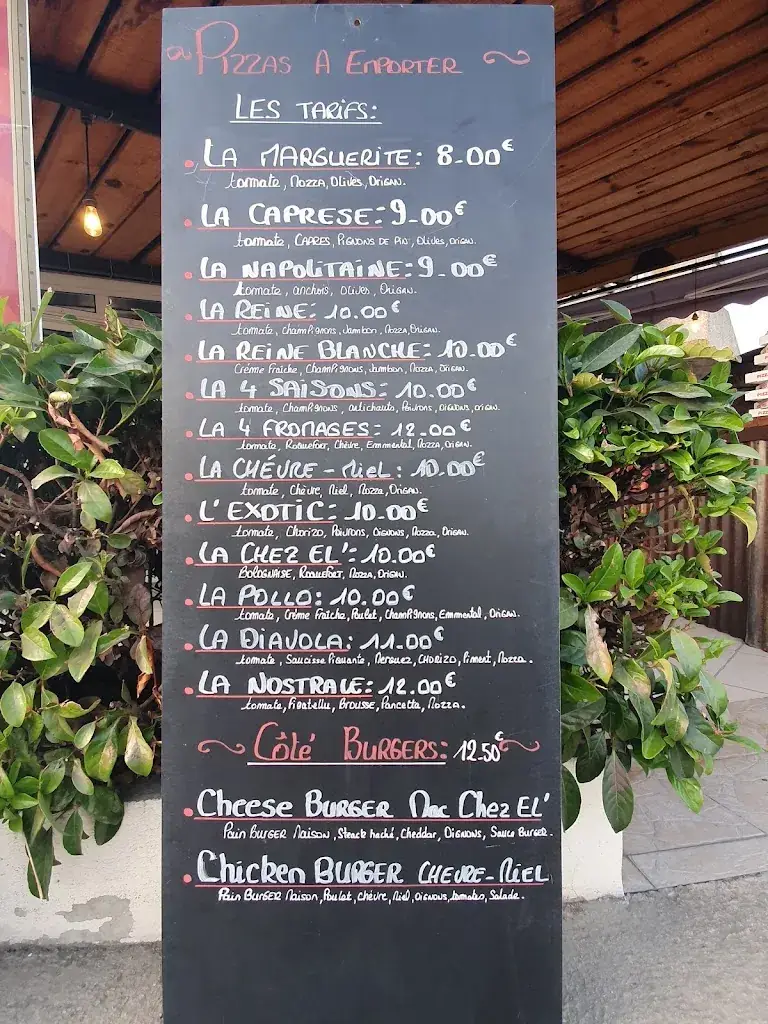 Pizzas A Emporter
Les Tarifs:
La Marguerite: 8.00€
tomate, Mozza, Olives, Origan.
La Caprese: 9.00€
tomate, Capres, Pignons de Pin, Olives, origan.
La Napolitaine: 9.00€
tomate, anchois, Olives, Origan.
La Reine: 10.00€
tomate, Champignons, Jambon, Mozza, Origan.
La Reine Blanche: 10.00€
Crème Fraîche, Champignons, Jambon, Mozza, Origan.
La 4 Saisons: 10.00€
tomate, Champignons, artichauts, Poivrons, oignons, origan.
La 4 Fromages: 12.00€
tomate, Roquefort, Chèvre, Emmental, Mozza, Origan.
La Chévre-Miel: 10.00€
tomate, Chèvre, Miel, Mozza, Origan.
L'Exotic: 10.00€
tomate, Chorizo, Poivrons, Oignons, Mozza, Origan.
La Chez El': 10.00€
Bolognaise, Roquefort, Mozza, Origan.
La Pollo: 10.00€
tomate, Crème Fraîche, Poulet, Champignons, Emmental, Origan.
La Diavola: 11.00€
tomate, Saucisse Piquante, Merguez, Chorizo, Piment, Mozza.
La Nostrale: 12.00€
tomate, Figatellu, Brousse, Pancetta, Mozza.
Côté Burgers: 12.50€
Cheese Burger Mac Chez El'
Pain Burger Maison, Steack haché, Cheddar, Oignons, Sauce Burger.
Chicken Burger Chevre-Miel
Pain Burger Maison, Poulet, chèvre, Miel, oignons, tomates, Salade.